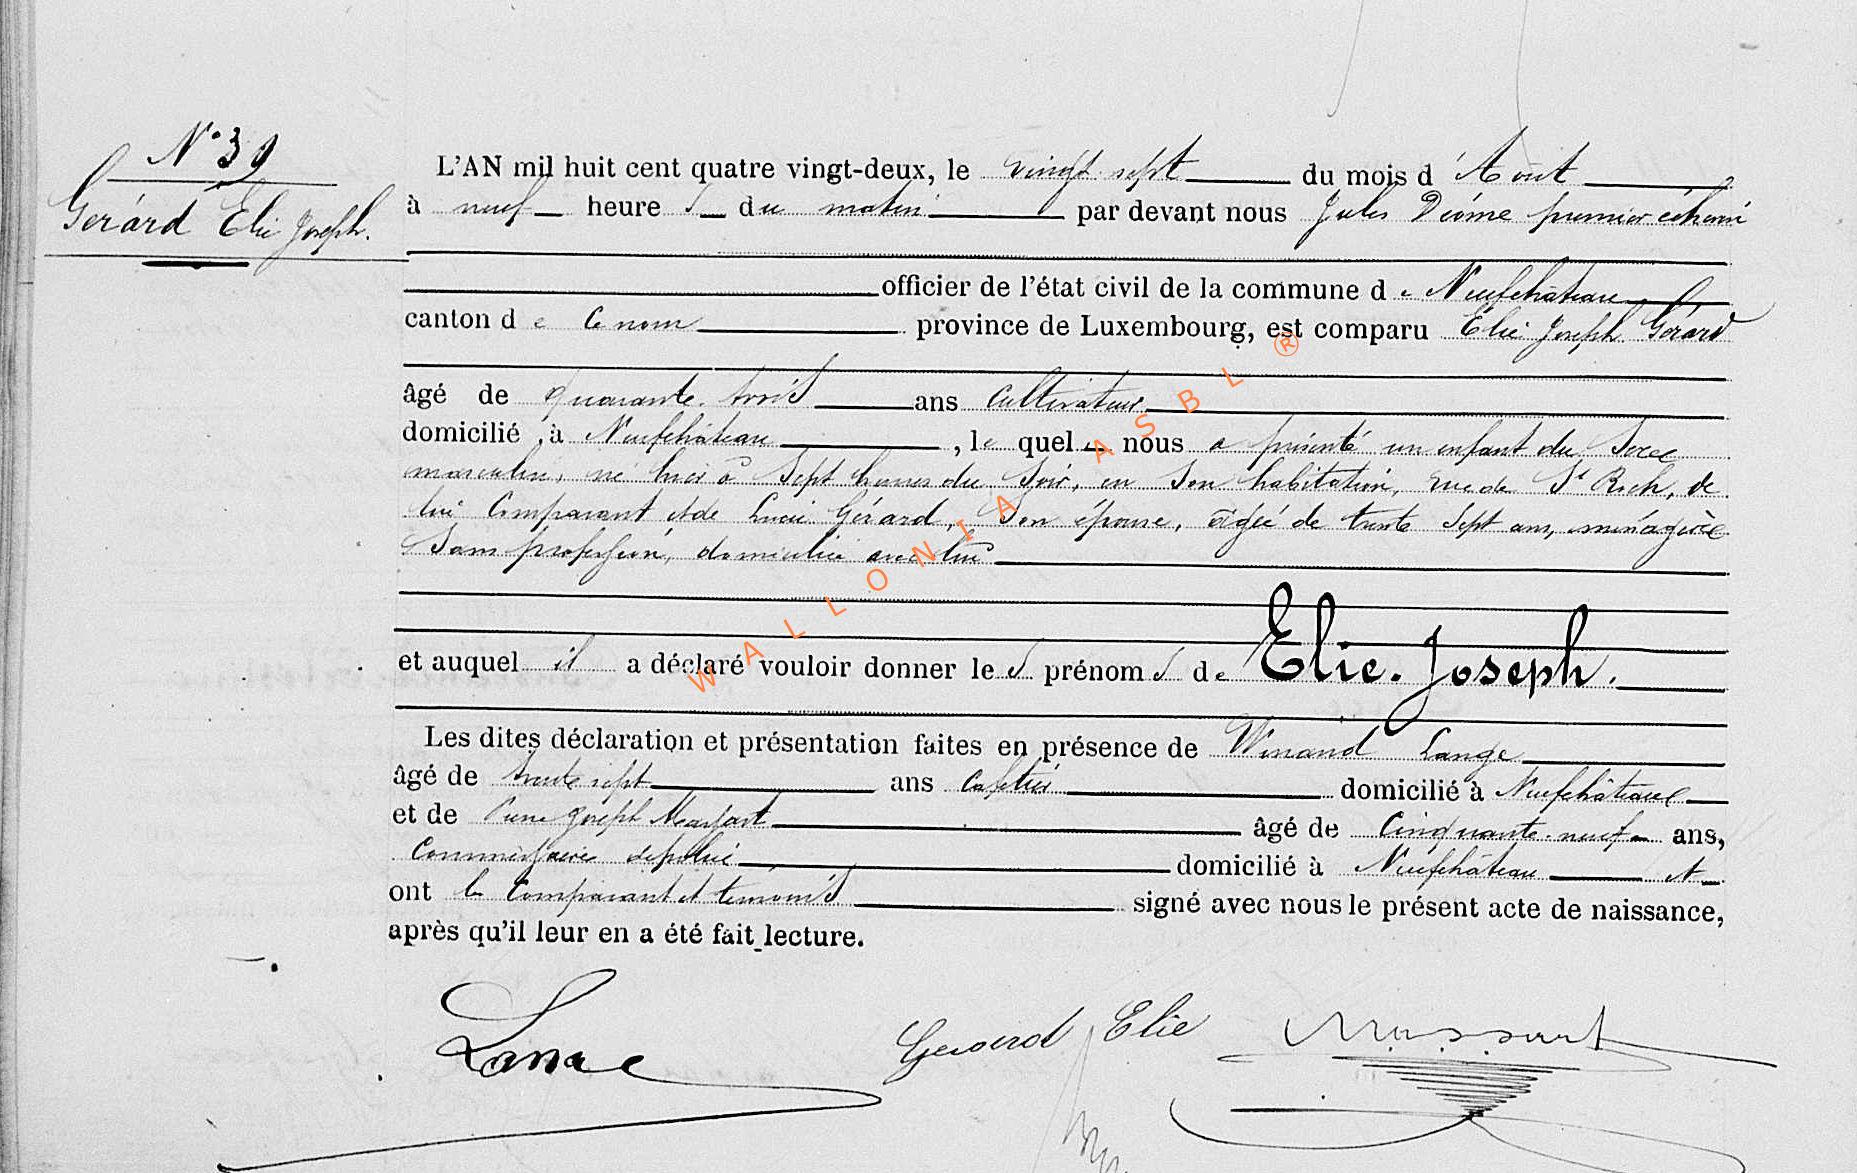 N° 39
Gérard Elie Joseph.
L'AN mil huit cent quatre vingt-deux, le vingt sept du mois d'Août
à neuf heure s du matin par devant nous Jules Diôme premier échevin
officier de l'état civil de la commune de Neufchâteau
canton de Ce nom province de Luxembourg, est comparu Elie Joseph Gérard
âgé de quarante trois ans Cultivateur
domicilié à Neufchâteau, lequel nous a présenté un enfant du Sexe
masculin, né hier à Sept heures du Soir, en Son habitation, rue de St Roch, de
lui Comparant et de Lucie Gérard, Son épouse, âgée de trente Sept ans, ménagère
Sans profession, domiciliée avec lui
et auquel il a déclaré vouloir donner le s prénom s de Elie. Joseph.
Les dites déclaration et présentation faites en présence de Winand Lange
âgé de trente sept ans Cafetier domicilié à Neufchâteau
et de Pierre Joseph Massart âgé de Cinquante-neuf ans,
Commissaire de police domicilié à Neufchâteau et
ont le Comparant et témoins signé avec nous le présent acte de naissance,
après qu'il leur en a été fait lecture.
Lange
Gerard Elie
Massart
WALLONIA ASBL ®